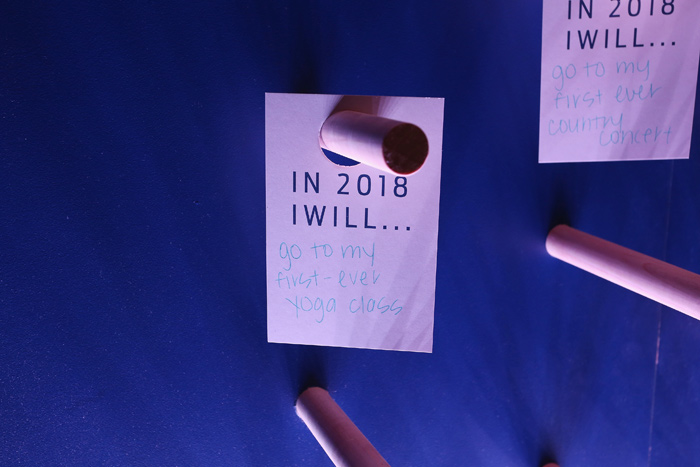 IN 2018
IWILL...
go to my
first-ever
yoga class
IN 2018
IWILL...
go to my
first ever
country
concert